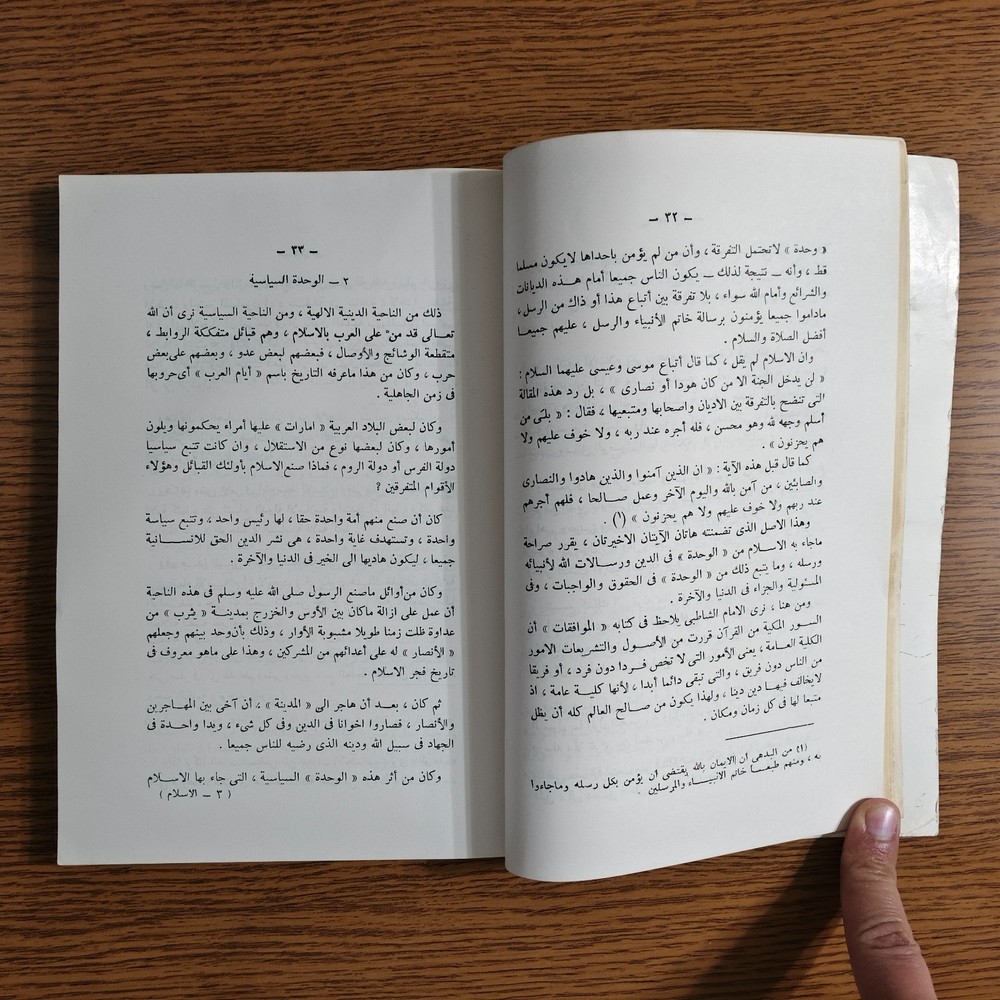 – ٣٢ –
« وحدة » لاتحتمل التفرقة ، وأن من لم يؤمن باحداها لايكون مسلما
قط ، وأنه – نتيجة لذلك – يكون الناس جميعا أمام هـذه الديانات
والشرائع وأمام الله سواء ، بلا تفرقة بين أتباع هذا أو ذاك من الرسل ،
ماداموا جميعا يؤمنون برسالة خاتم الأنبياء والرسل ، عليهم جميعـا
أفضل الصلاة والسلام .
وان الاسلام لم يقل ، كما قال أتباع موسى وعيسى عليهما السلام :
« لن يدخل الجنة الا من كان هودا أو نصارى » ، بل رد هذه المقالة
التى تنضح بالتفرقة بين الاديان واصحابها ومتبعيها ، فقال : « بلى من
أسلم وجهه لله وهو محسن ، فله أجره عند ربه ، ولا خوف عليهم ولا
هم يحزنون » .
كما قال قبل هذه الآية : « ان الذين آمنوا والذين هادوا والنصارى
والصابئين ، من آمن بالله واليوم الآخر وعمل صـالحا ، فلهم أجرهم
عند ربهم ولا خوف عليهم ولا هم يحزنون » (١) .
وهذا الاصل الذى تضمنته هاتان الآيتان الاخيرتان ، يقرر صراحة
ماجاء به الاسـلام من « الوحدة » فى الدين ورسـالات الله لأنبيائه
ورسله ، وما يتبع ذلك من « الوحدة » فى الحقوق والواجبات ، وفى
المسئولية والجزاء فى الدنيا والآخرة .
ومن هنا ، نرى الامام الشاطبى يلاحظ فى كتابه « الموافقات » أن
السور المكية من القرآن قررت من الأصول والتشريعات الامور
الكلية العامة ، يعنى الأمور التى لا تخص فـردا دون فرد ، أو فريقا
من الناس دون فريق ، والتى تبقى دائما أبدا ، لأنها كليـة عامة ، اذ
لايخالف فيهـا دين دينا ، ولهذا يكون من صالح العالم كله أن يظل
متبعا لها فى كل زمان ومكان .
(١) من البدهى أن الايمان بالله يقتضى أن يؤمن بكل رسله وماجاءوا
به ، ومنهم طبعـا خاتم الأنبيـاء والمرسلين .
– ٣٣ –
٢ – الوحدة السياسية
ذلك من الناحية الدينية الالهية ، ومن الناحية السياسية نرى أن الله
تعـالى قد منّ على العرب بالاسلام ، وهم قبائل متفككة الروابط ،
متقطعة الوشائج والأوصال ، فبعضهم لبعض عدو ، وبعضهم على بعض
حرب ، وكان من هذا ماعرفه التاريخ باسم « أيام العرب » أى حروبها
فى زمن الجاهلية .
وكان لبعض البلاد العربية « امارات » عليها أمراء يحكمونها ويلون
أمورها ، وكان لبعضها نوع من الاستقلال ، وان كانت تتبع سياسيا
دولة الفرس أو دولة الروم ، فماذا صنع الاسلام بأولئك القبائل وهؤلاء
الأقوام المتفرقين ؟
كان أن صنع منهم أمة واحدة حقا ، لها رئيس واحد ، وتتبع سياسة
واحدة ، وتستهدف غاية واحدة ، هى نشر الدين الحق للانســانية
جميعا ، ليكون هاديها الى الخير فى الدنيا والآخرة .
وكان من أوائل ماصنع الرسول صلى الله عليه وسلم فى هذه الناحية
أن عمل على ازالة ماكان بين الأوس والخزرج بمدينـة « يثرب » من
عداوة ظلت زمنا طويلا مشبوبة الأوار ، وذلك بأن وحد بينهم وجعلهم
« الأنصار » له على أعدائهم من المشركين ، وهذا على ماهو معروف فى
تاريخ فجر الاسلام .
ثم كان ، بعـد أن هاجر الى « المدينة » ، أن آخى بين المهاجرين
والأنصار ، فصاروا اخوانا فى الدين وفى كل شىء ، ويدا واحـدة فى
الجهاد فى سبيل الله ودينه الذى رضيه للناس جميعا .
وكان من أثر هذه « الوحدة » السياسية ، التى جاء بها الاسلام
( ٣ – الاسلام )